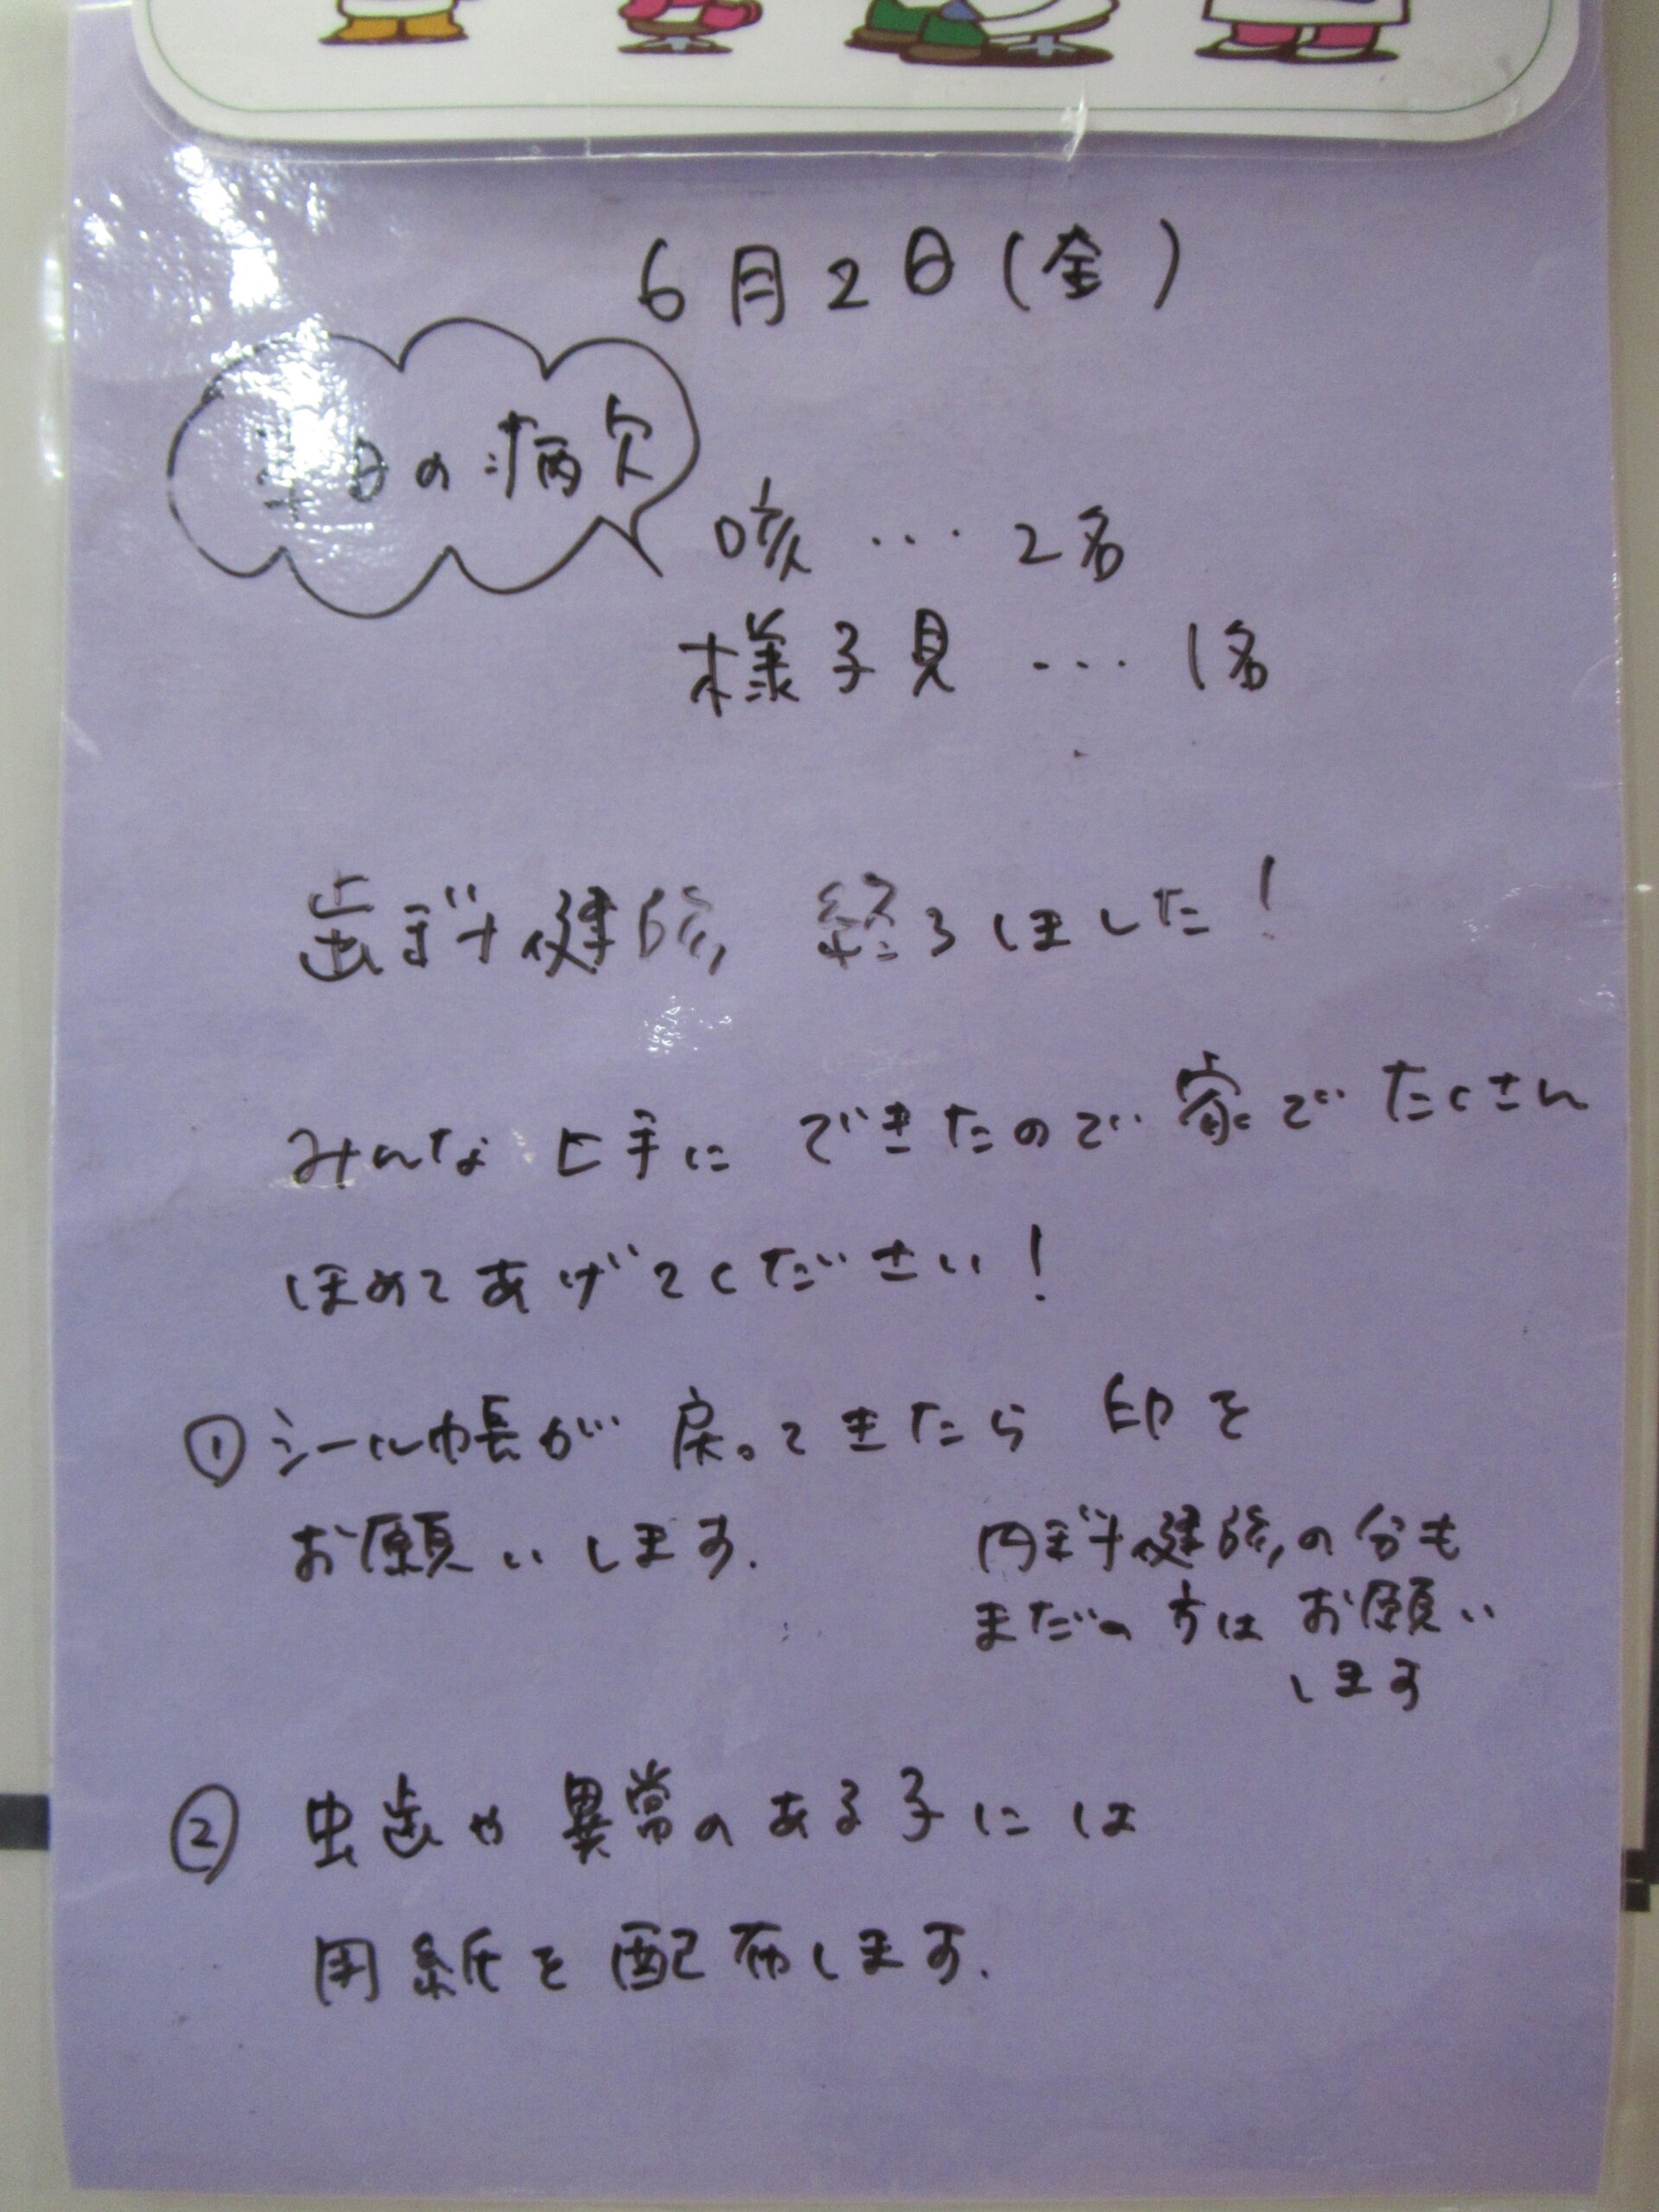 6月2日(金)
本日の病欠
咳 … 2名
様子見 … 1名
歯科健診 終了しました!
みんな上手に できたので 家で たくさん
ほめてあげてください!
① シール帳が 戻ってきたら 印を
お願いします.
内科健診の分も
まだの方は お願い
します
② 虫歯や 異常の ある子には
用紙を 配布します.